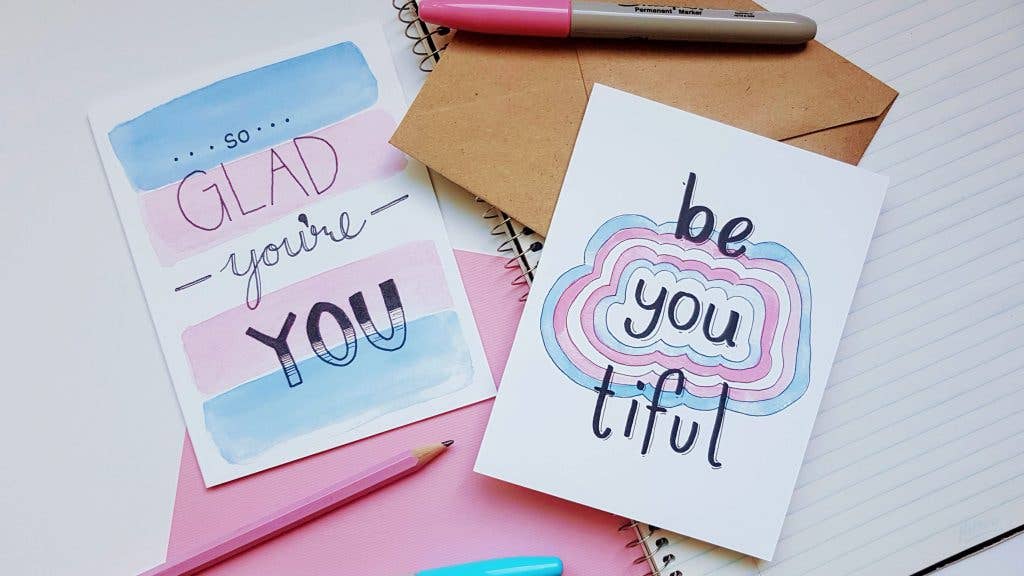 ...so...
GLAD
you're
YOU
be
you
tiful
Permanent Marker